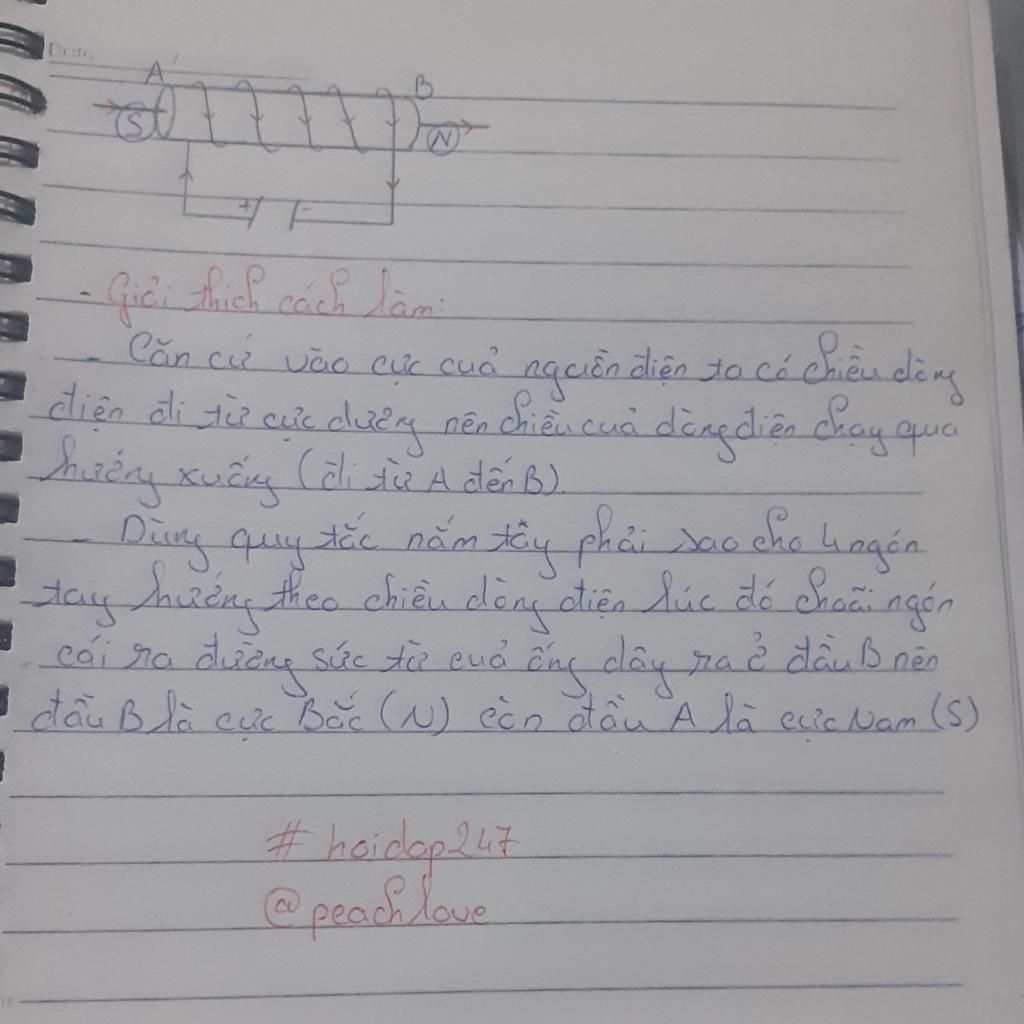 Date
A
B
S
N
+ -
- Giải thích cách làm:
- Căn cứ vào cực cuả nguồn điện ta có chiều dòng
điện đi từ cực dương nên chiều cuả dòng điện chạy qua
hướng xuống (đi từ A đến B).
- Dùng quy tắc nắm tây phải sao cho 4 ngón
tay hướng theo chiều dòng điện lúc đó choãi ngón
cái ra đường sức từ cuả ống dây ra ở đầu B nên
đầu B là cực Bắc (N) còn đầu A là cực Nam (S)
# hoidap247
@peachlove